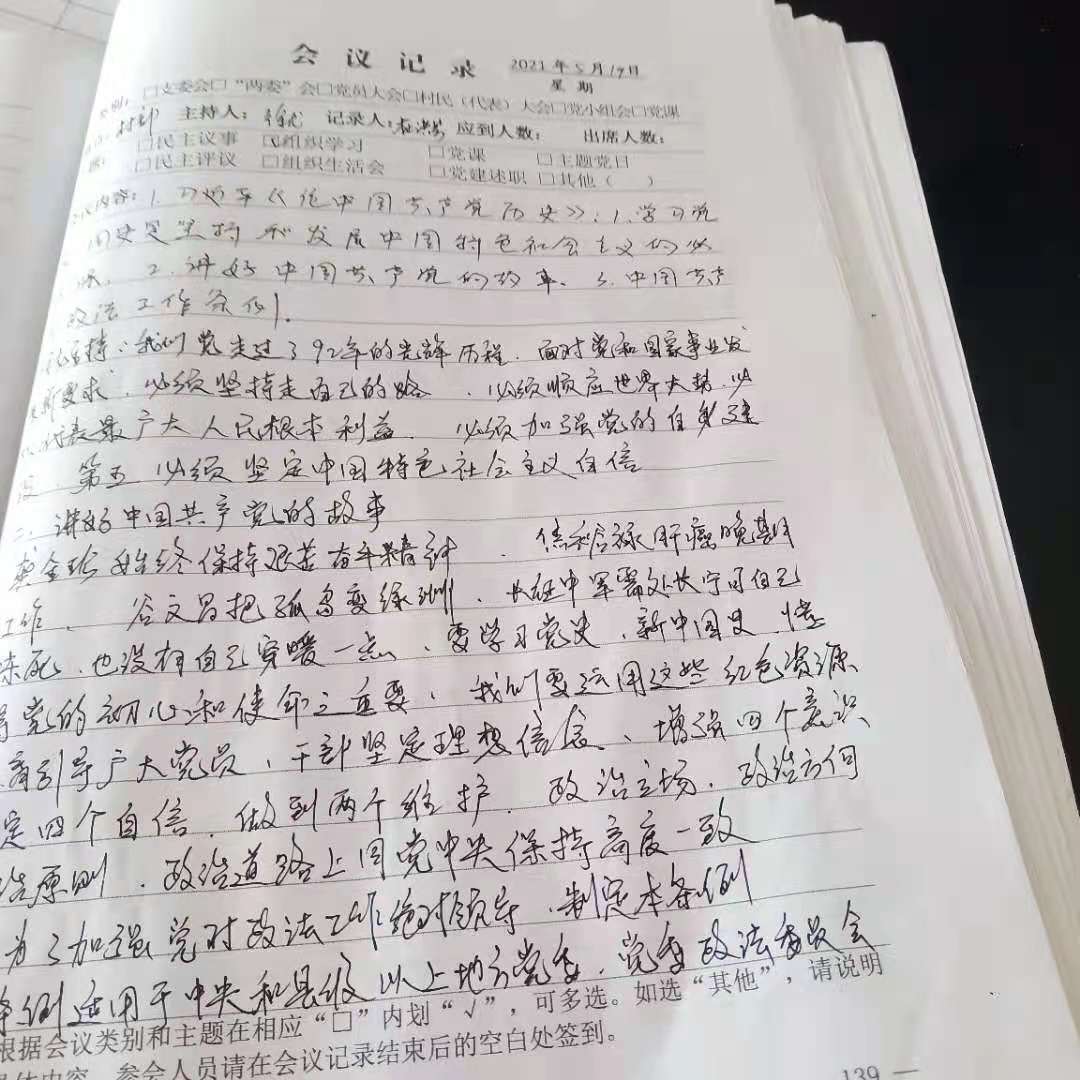 会议记录 2021年5月19日
星期
类别：□支委会□“两委”会□党员大会□村民（代表）大会□党小组会□党课
村部 主持人： 记录人： 应到人数： 出席人数：
□民主议事 ☑组织学习 □党课 □主题党日
□民主评议 □组织生活会 □党建述职 □其他（ ）
内容：1.习近平《论中国共产党历史》：1.学习党
国史是坚持和发展中国特色社会主义的必
课．2.讲好中国共产党的故事、3.中国共产
政法工作条例．
主持：我们党走过了92年的光辉历程．面对党和国家事业发
新要求．必须坚持走自己的路．必须顺应世界大势．必
代表最广大人民根本利益．必须加强党的自身建
设．第五必须坚定中国特色社会主义自信
二．讲好中国共产党的故事
龚全珍始终保持艰苦奋斗精神．焦裕禄肝癌晚期
工作、谷文昌把孤岛变绿洲、长征中军需处长宁可自己
冻死、也没有自己穿暖一点、要学习党史、新中国史．懂
得党的初心和使命之重要，我们要运用这些红色资源
育引导广大党员、干部坚定理想信念、增强四个意识
定四个自信．做到两个维护．政治立场．政治方向
治原则．政治道路上同党中央保持高度一致
为了加强党对政法工作绝对领导、制定本条例
条例适用于中央和县级以上地方党委．党委政法委员会
根据会议类别和主题在相应“□”内划“√”，可多选。如选“其他”，请说明
具体内容．参会人员请在会议记录结束后的空白处签到。
139